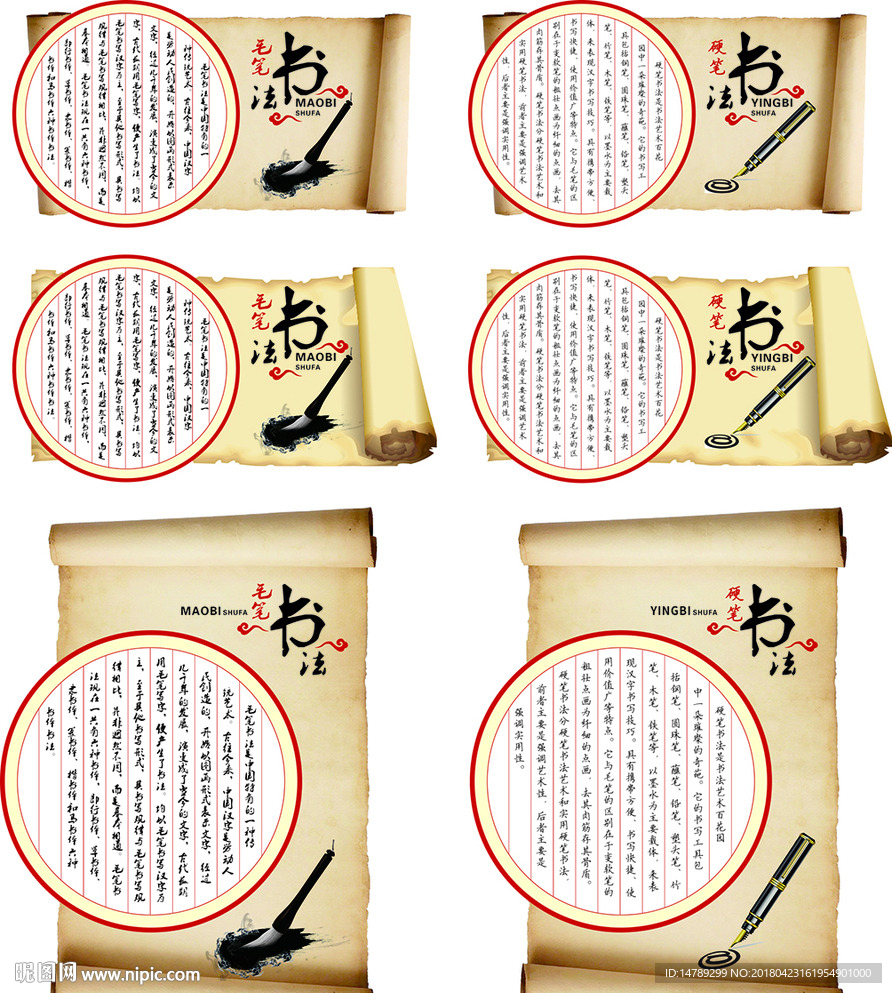 毛笔
书法
MAOBI
SHUFA
毛笔书法是中国特有的一
种传统艺术。古往今来,中国汉字
是劳动人民创造的,开始以图画形式表示
文字,经过几千年的发展,演变成了当今的文
字,古代用毛笔写字,便产生了书法。均以
毛笔书写汉字为主,至于其他书写形式,其书写
规律与毛笔书写规律相比,并非迥然不同,而是
基本相通。毛笔书法现在一共有六种书体,
即行书体、草书体、隶书体、篆书体、楷
书体和马书体六种书体书法。
硬笔
书法
YINGBI
SHUFA
硬笔书法是书法艺术百花
园中一朵璀璨的奇葩。它的书写工
具包括钢笔、圆珠笔、蘸笔、铅笔、塑头
笔、竹笔、木笔、铁笔等,以墨水为主要载
体,来表现汉字书写技巧。具有携带方便、
书写快捷、使用价值广等特点。它与毛笔的区
别在于变软笔的粗壮点画为纤细的点画,去其
肉筋存其骨质。硬笔书法分硬笔书法艺术和
实用硬笔书法,前者主要是强调艺术
性,后者主要是强调实用性。
毛笔
书法
MAOBI
SHUFA
毛笔书法是中国特有的一
种传统艺术。古往今来,中国汉字
是劳动人民创造的,开始以图画形式表示
文字,经过几千年的发展,演变成了当今的文
字,古代用毛笔写字,便产生了书法。均以
毛笔书写汉字为主,至于其他书写形式,其书写
规律与毛笔书写规律相比,并非迥然不同,而是
基本相通。毛笔书法现在一共有六种书体,
即行书体、草书体、隶书体、篆书体、楷
书体和马书体六种书体书法。
硬笔
书法
YINGBI
SHUFA
硬笔书法是书法艺术百花
园中一朵璀璨的奇葩。它的书写工
具包括钢笔、圆珠笔、蘸笔、铅笔、塑头
笔、竹笔、木笔、铁笔等,以墨水为主要载
体,来表现汉字书写技巧。具有携带方便、
书写快捷、使用价值广等特点。它与毛笔的区
别在于变软笔的粗壮点画为纤细的点画,去其
肉筋存其骨质。硬笔书法分硬笔书法艺术和
实用硬笔书法,前者主要是强调艺术
性,后者主要是强调实用性。
毛笔
书法
MAOBI SHUFA
毛笔书法是中国特有的一种传
统艺术。古往今来,中国汉字是劳动人
民创造的,开始以图画形式表示文字,经过
几千年的发展,演变成了当今的文字,古代
用毛笔写字,便产生了书法。均以毛笔书写汉字为
主,至于其他书写形式,其书写规律与毛笔书写规
律相比,并非迥然不同,而是基本相通。毛笔书
法现在一共有六种书体,即行书体、草书体、
隶书体、篆书体、楷书体和马书体六种
书体书法。
硬笔
书法
YINGBI SHUFA
硬笔书法是书法艺术百花园
中一朵璀璨的奇葩。它的书写工具包
括钢笔、圆珠笔、蘸笔、铅笔、塑头笔、竹
笔、木笔、铁笔等,以墨水为主要载体,来表
现汉字书写技巧。具有携带方便、书写快捷、使
用价值广等特点。它与毛笔的区别在于变软笔的
粗壮点画为纤细的点画,去其肉筋存其骨质。
硬笔书法分硬笔书法艺术和实用硬笔书法,
前者主要是强调艺术性,后者主要是
强调实用性。
昵图网 www.nipic.com
ID:14789299 NO:20180423161954901000